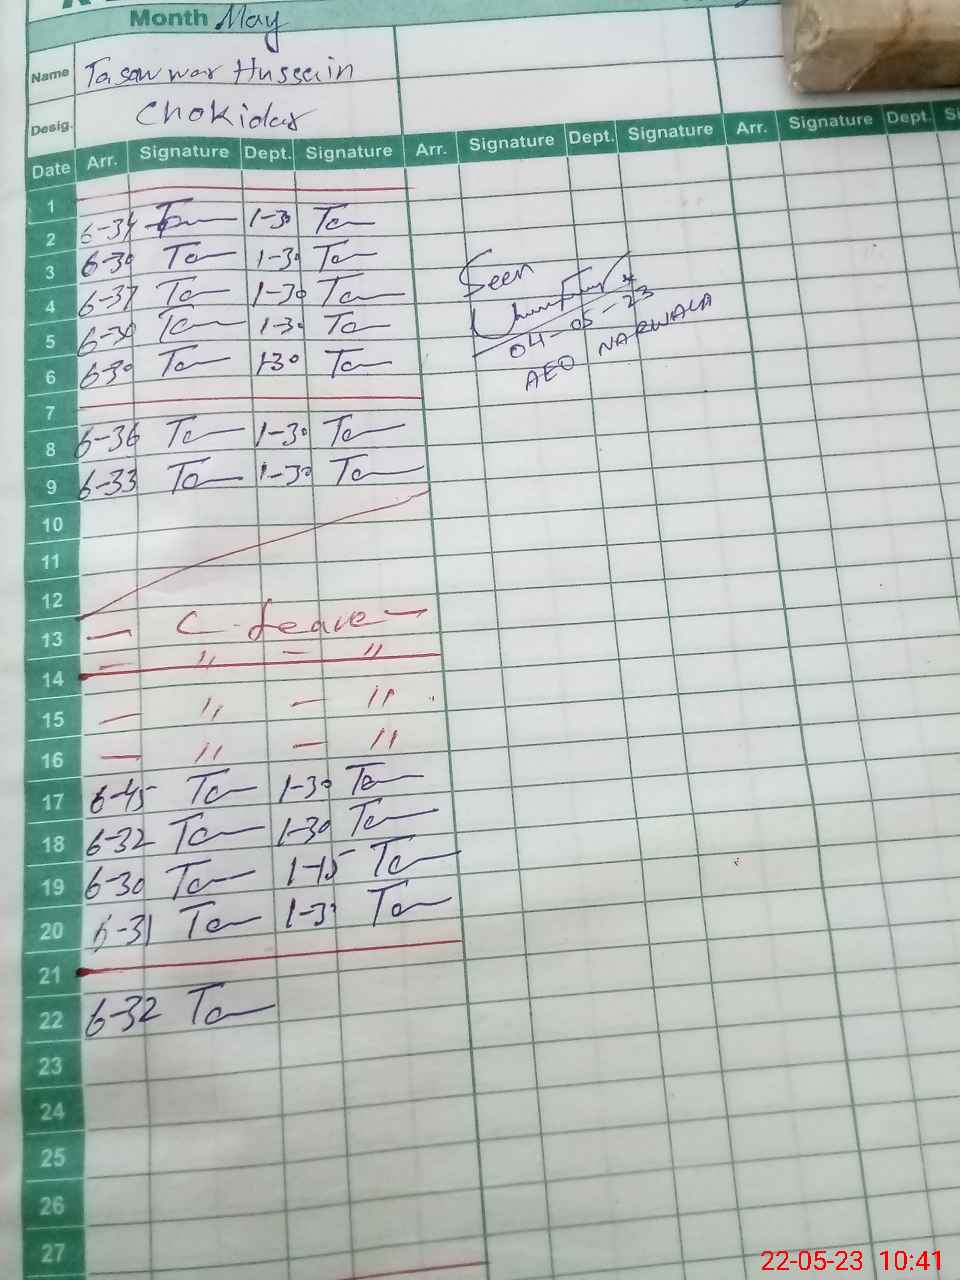 Month May
Name Tasawwar Hussain
Desig. Chokidar
Date Arr. Signature Dept. Signature Arr. Signature Dept. Signature Arr. Signature Dept.
1
2 6-34 Ta 1-30 Ta
3 6-30 Ta 1-30 Ta
4 6-37 Ta 1-30 Ta
5 6-30 Ta 1-30 Ta
6 6-30 Ta 1-30 Ta
7
8 6-36 Ta 1-30 Ta
9 6-33 Ta 1-30 Ta
10
11
12
13 — C-Leave —
14 — " — "
15 — " — "
16 — " — "
17 6-45 Ta 1-30 Ta
18 6-32 Ta 1-30 Ta
19 6-30 Ta 1-15 Ta
20 6-31 Ta 1-30 Ta
21
22 6-32 Ta
23
24
25
26
27
Seen
04-05-23
AEO NARWALA
22-05-23 10:41